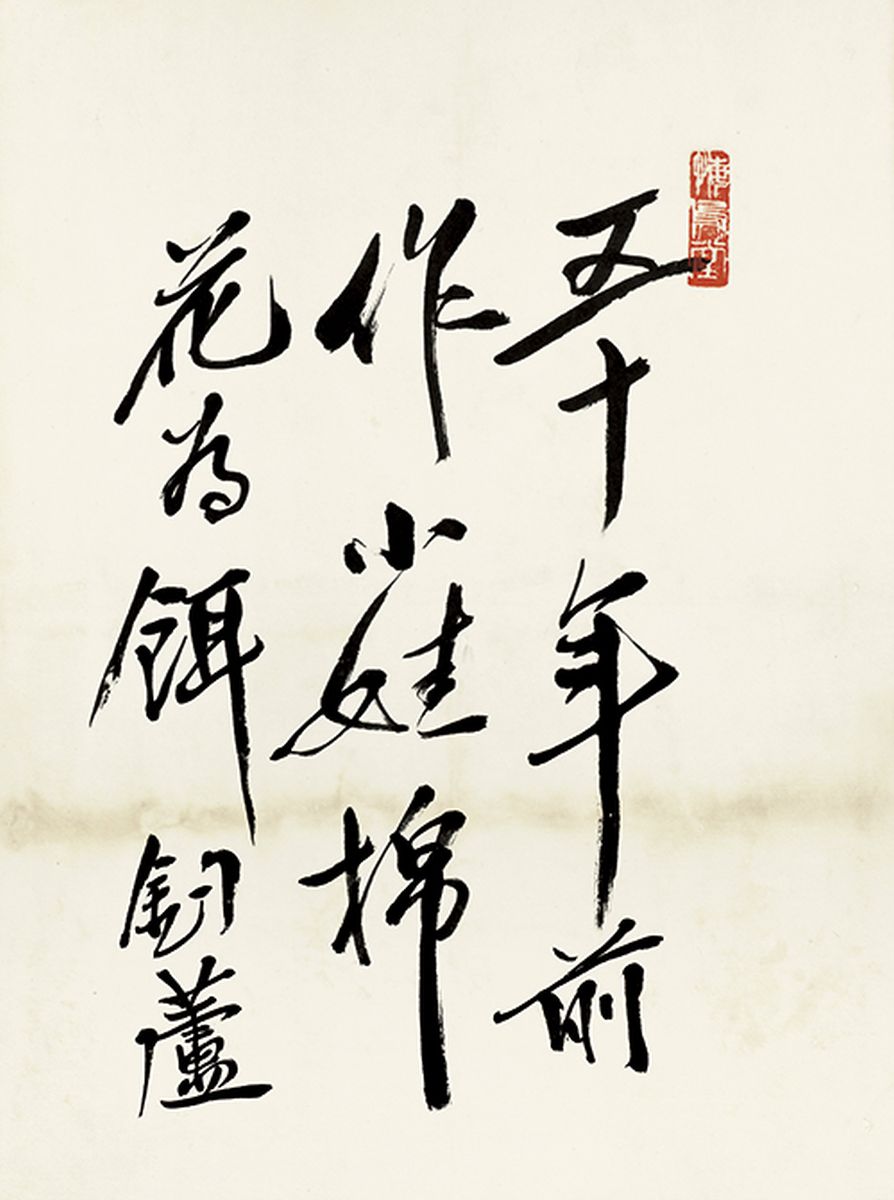 悔烏堂
五十年前
作小娃棉
花為餌釣蘆